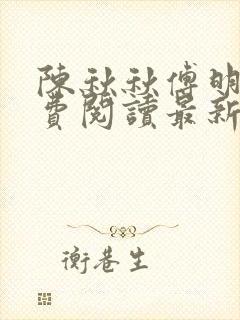 陳秋秋傅明
費閱讀最新
衡巷生